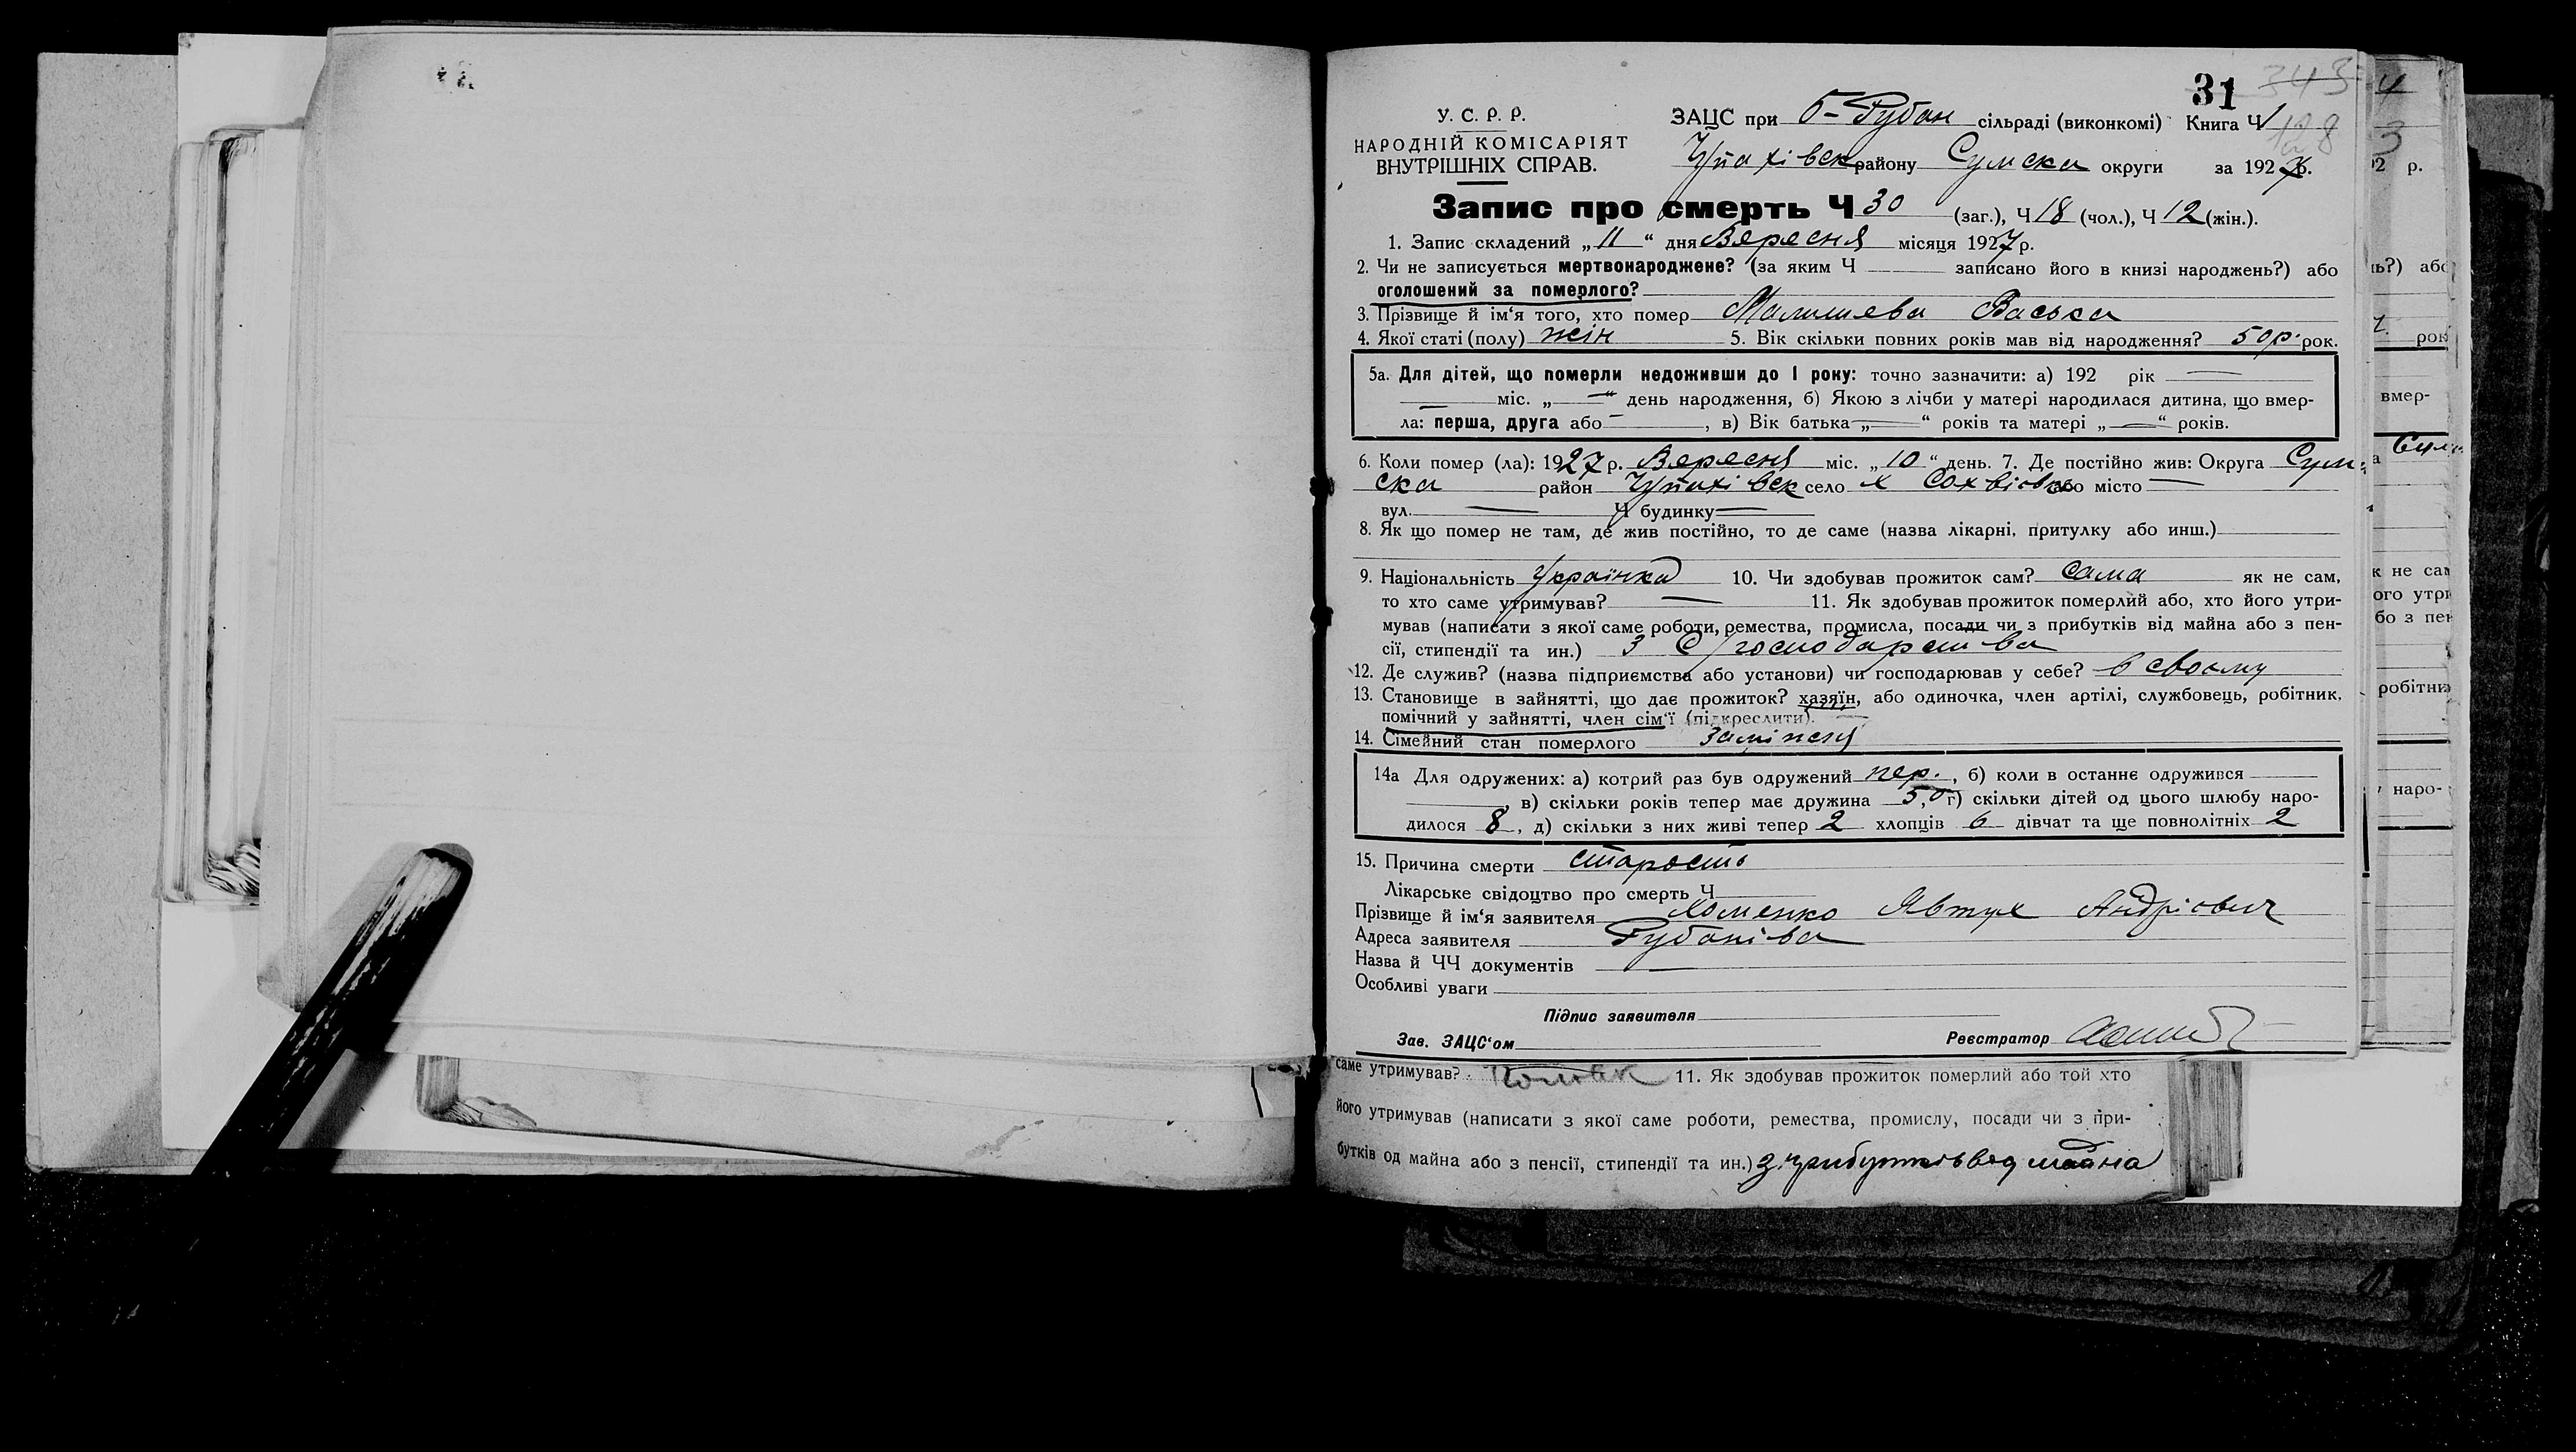 31 343
У. С. Р. Р. ЗАЦС при Б-Рубан сільраді (виконкомі) Книга Ч 1
128
НАРОДНІЙ КОМІСАРІЯТ
ВНУТРІШНІХ СПРАВ. району Сумска округи за 1927 р.
Запис про смерть Ч 30 (заг.), Ч 18 (чол.), Ч 12 (жін.).
1. Запис складений „ 11 “ дня Вересня місяця 1927 р.
2. Чи не записується мертвонароджене? (за яким Ч записано його в книзі народжень?) або
оголошений за померлого?
3. Прізвище й ім‘я того, хто помер Малишева Васька
4. Якої статі (полу) жін 5. Вік скільки повних років мав від народження? 50 р. рок.
5а. Для дітей, що померли недоживши до 1 року: точно зазначити: а) 192 рік —
— міс. „ — “ день народження, б) Якою з лічби у матері народилася дитина, що вмер-
ла: перша, друга або — , в) Вік батька „ — “ років та матері „ — “ років.
6. Коли помер (ла): 1927 р. Вересня міс. „ 10 “ день. 7. Де постійно жив: Округа Сум-
ска район село х або місто —
вул. — Ч будинку —
8. Як що помер не там, де жив постійно, то де саме (назва лікарні, притулку або инш.)
9. Національність Українка 10. Чи здобував прожиток сам? сама як не сам,
то хто саме утримував? — 11. Як здобував прожиток померлий або, хто його утри-
мував (написати з якої саме роботи, ремества, промисла, посади чи з прибутків від майна або з пен-
сії, стипендії та ин.) З С/господарства
12. Де служив? (назва підприємства або установи) чи господарював у себе? в своєму
13. Становище в зайнятті, що дає прожиток? хазяїн, або одиночка, член артілі, службовець, робітник,
помічний у зайнятті, член сім‘ї (підкреслити).
14. Сімейний стан померлого заміжня
14а Для одружених: а) котрий раз був одружений пер. , б) коли в останнє одружився
, в) скільки років тепер має дружина 50 г) скільки дітей од цього шлюбу наро-
дилося 8 , д) скільки з них живі тепер 2 хлопців 6 дівчат та ще повнолітніх 2
15. Причина смерти старость
Лікарське свідоцтво про смерть Ч
Прізвище й ім‘я заявителя Хоменко Явтух Андрієвич
Адреса заявителя Рубаніва
Назва й ЧЧ документів —
Особливі уваги
Підпис заявителя
Зав. ЗАЦС‘ом Реєстратор
саме утримував? 11. Як здобував прожиток померлий або той хто
його утримував (написати з якої саме роботи, ремества, промислу, посади чи з при-
бутків од майна або з пенсії, стипендії та ин.) з прибутків вод майна
4
3
92 р.
нь?) або
рок
вмер-
к не сам
ого утри
бо з пен
робітник
наро-